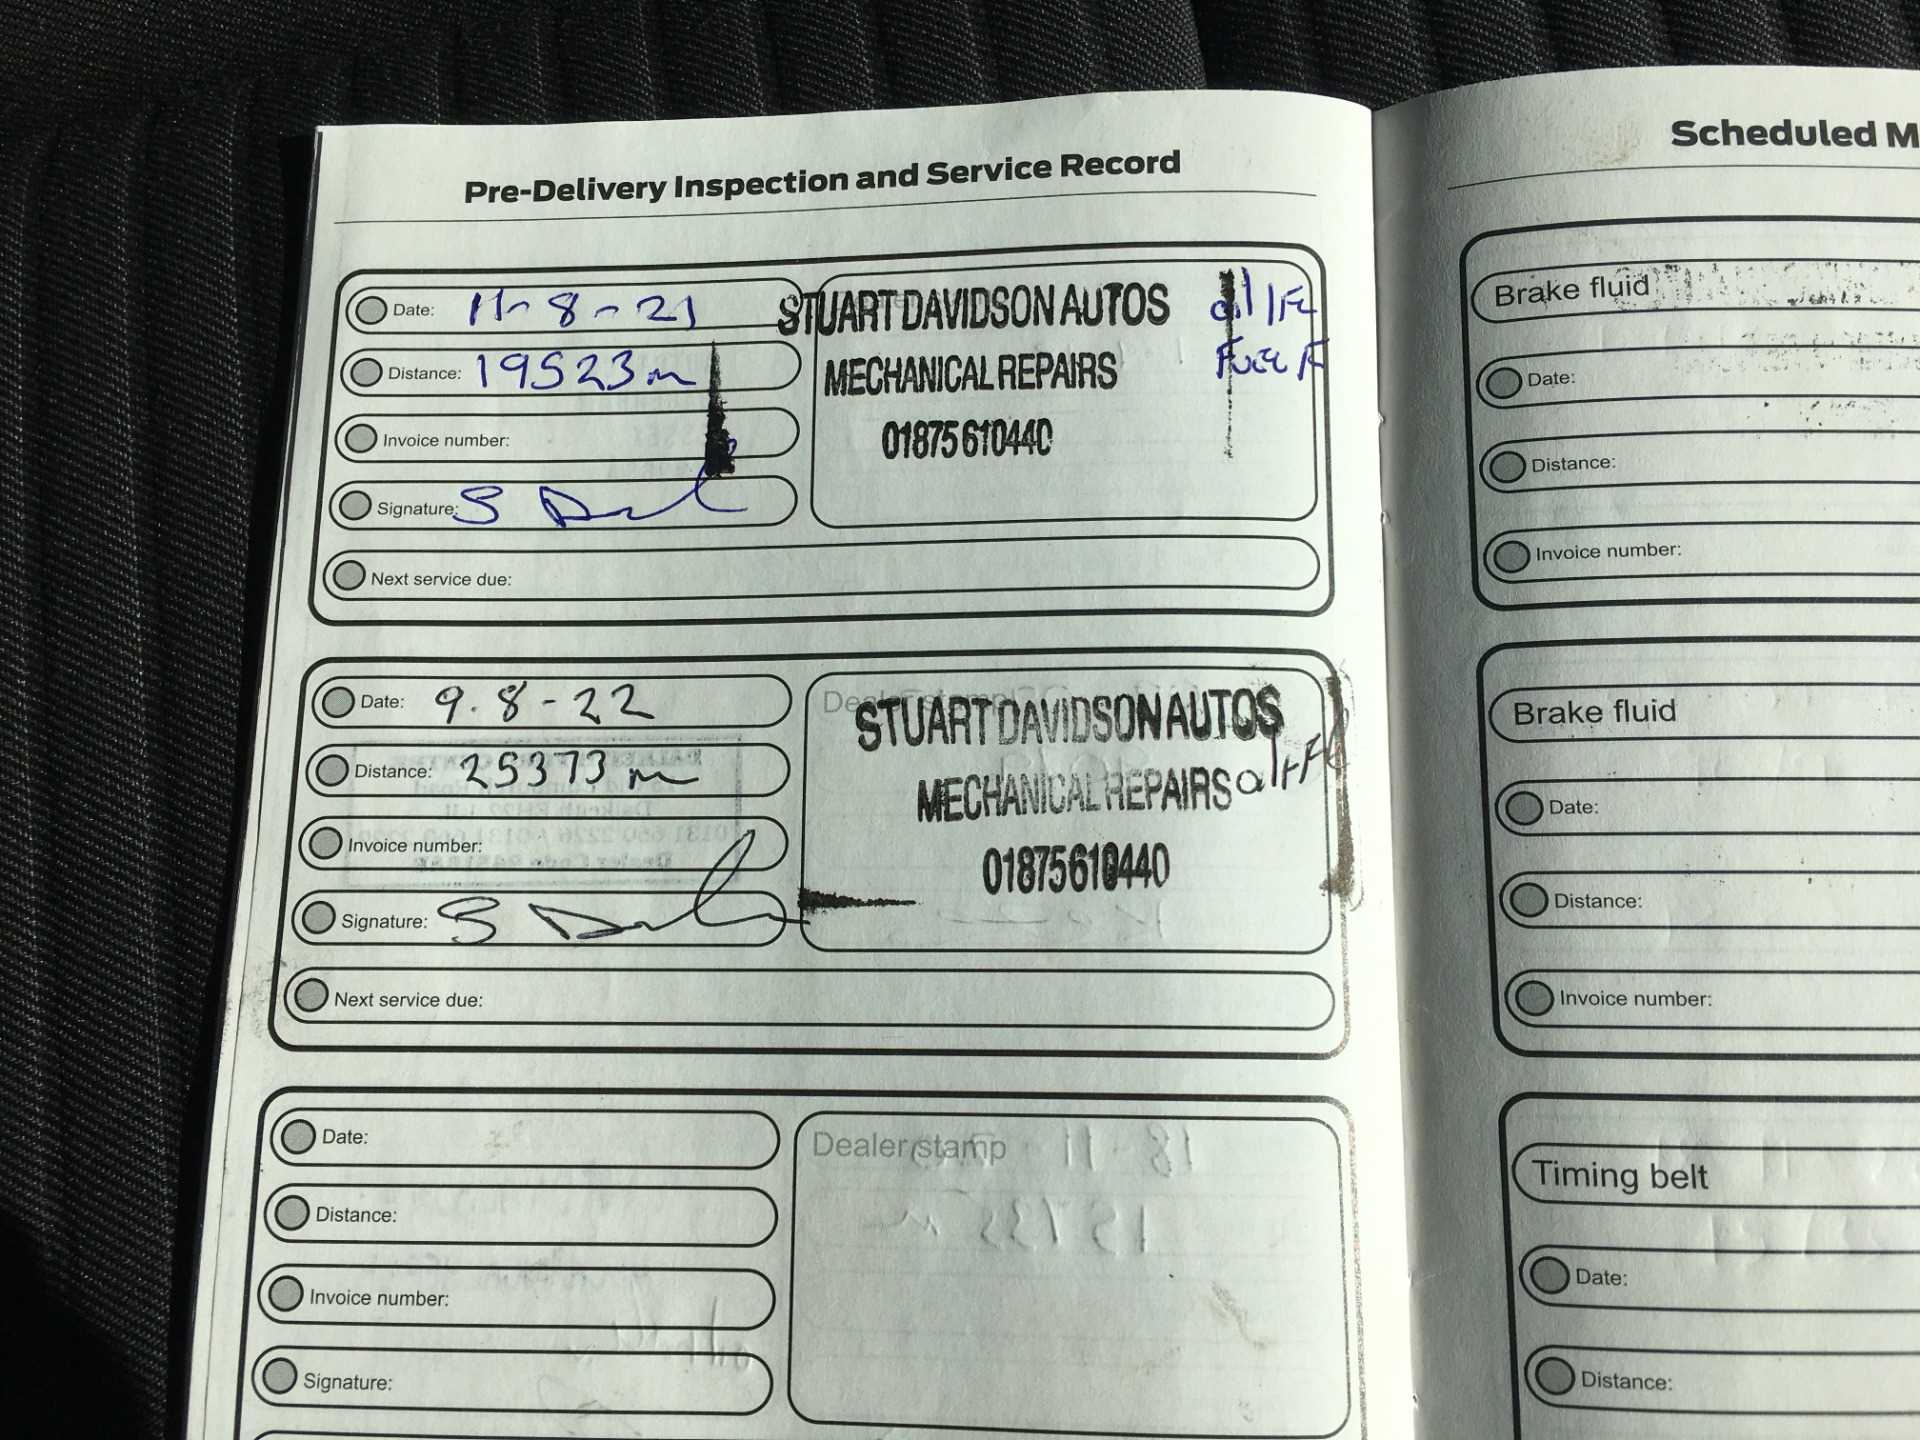 Pre-Delivery Inspection and Service Record
Date: 11-8-21
Distance: 19523m
Invoice number:
Signature: S
Next service due:
STUART DAVIDSON AUTOS
MECHANICAL REPAIRS
01875 610440
oil/F
Fuel F
Date: 9.8-22
Distance: 25373m
Invoice number:
Signature: S
Next service due:
Dealer stamp
STUART DAVIDSON AUTOS
MECHANICAL REPAIRS
01875610440
Date:
Distance:
Invoice number:
Signature:
Dealer stamp
Scheduled M
Brake fluid
Date:
Distance:
Invoice number:
Brake fluid
Date:
Distance:
Invoice number:
Timing belt
Date:
Distance: